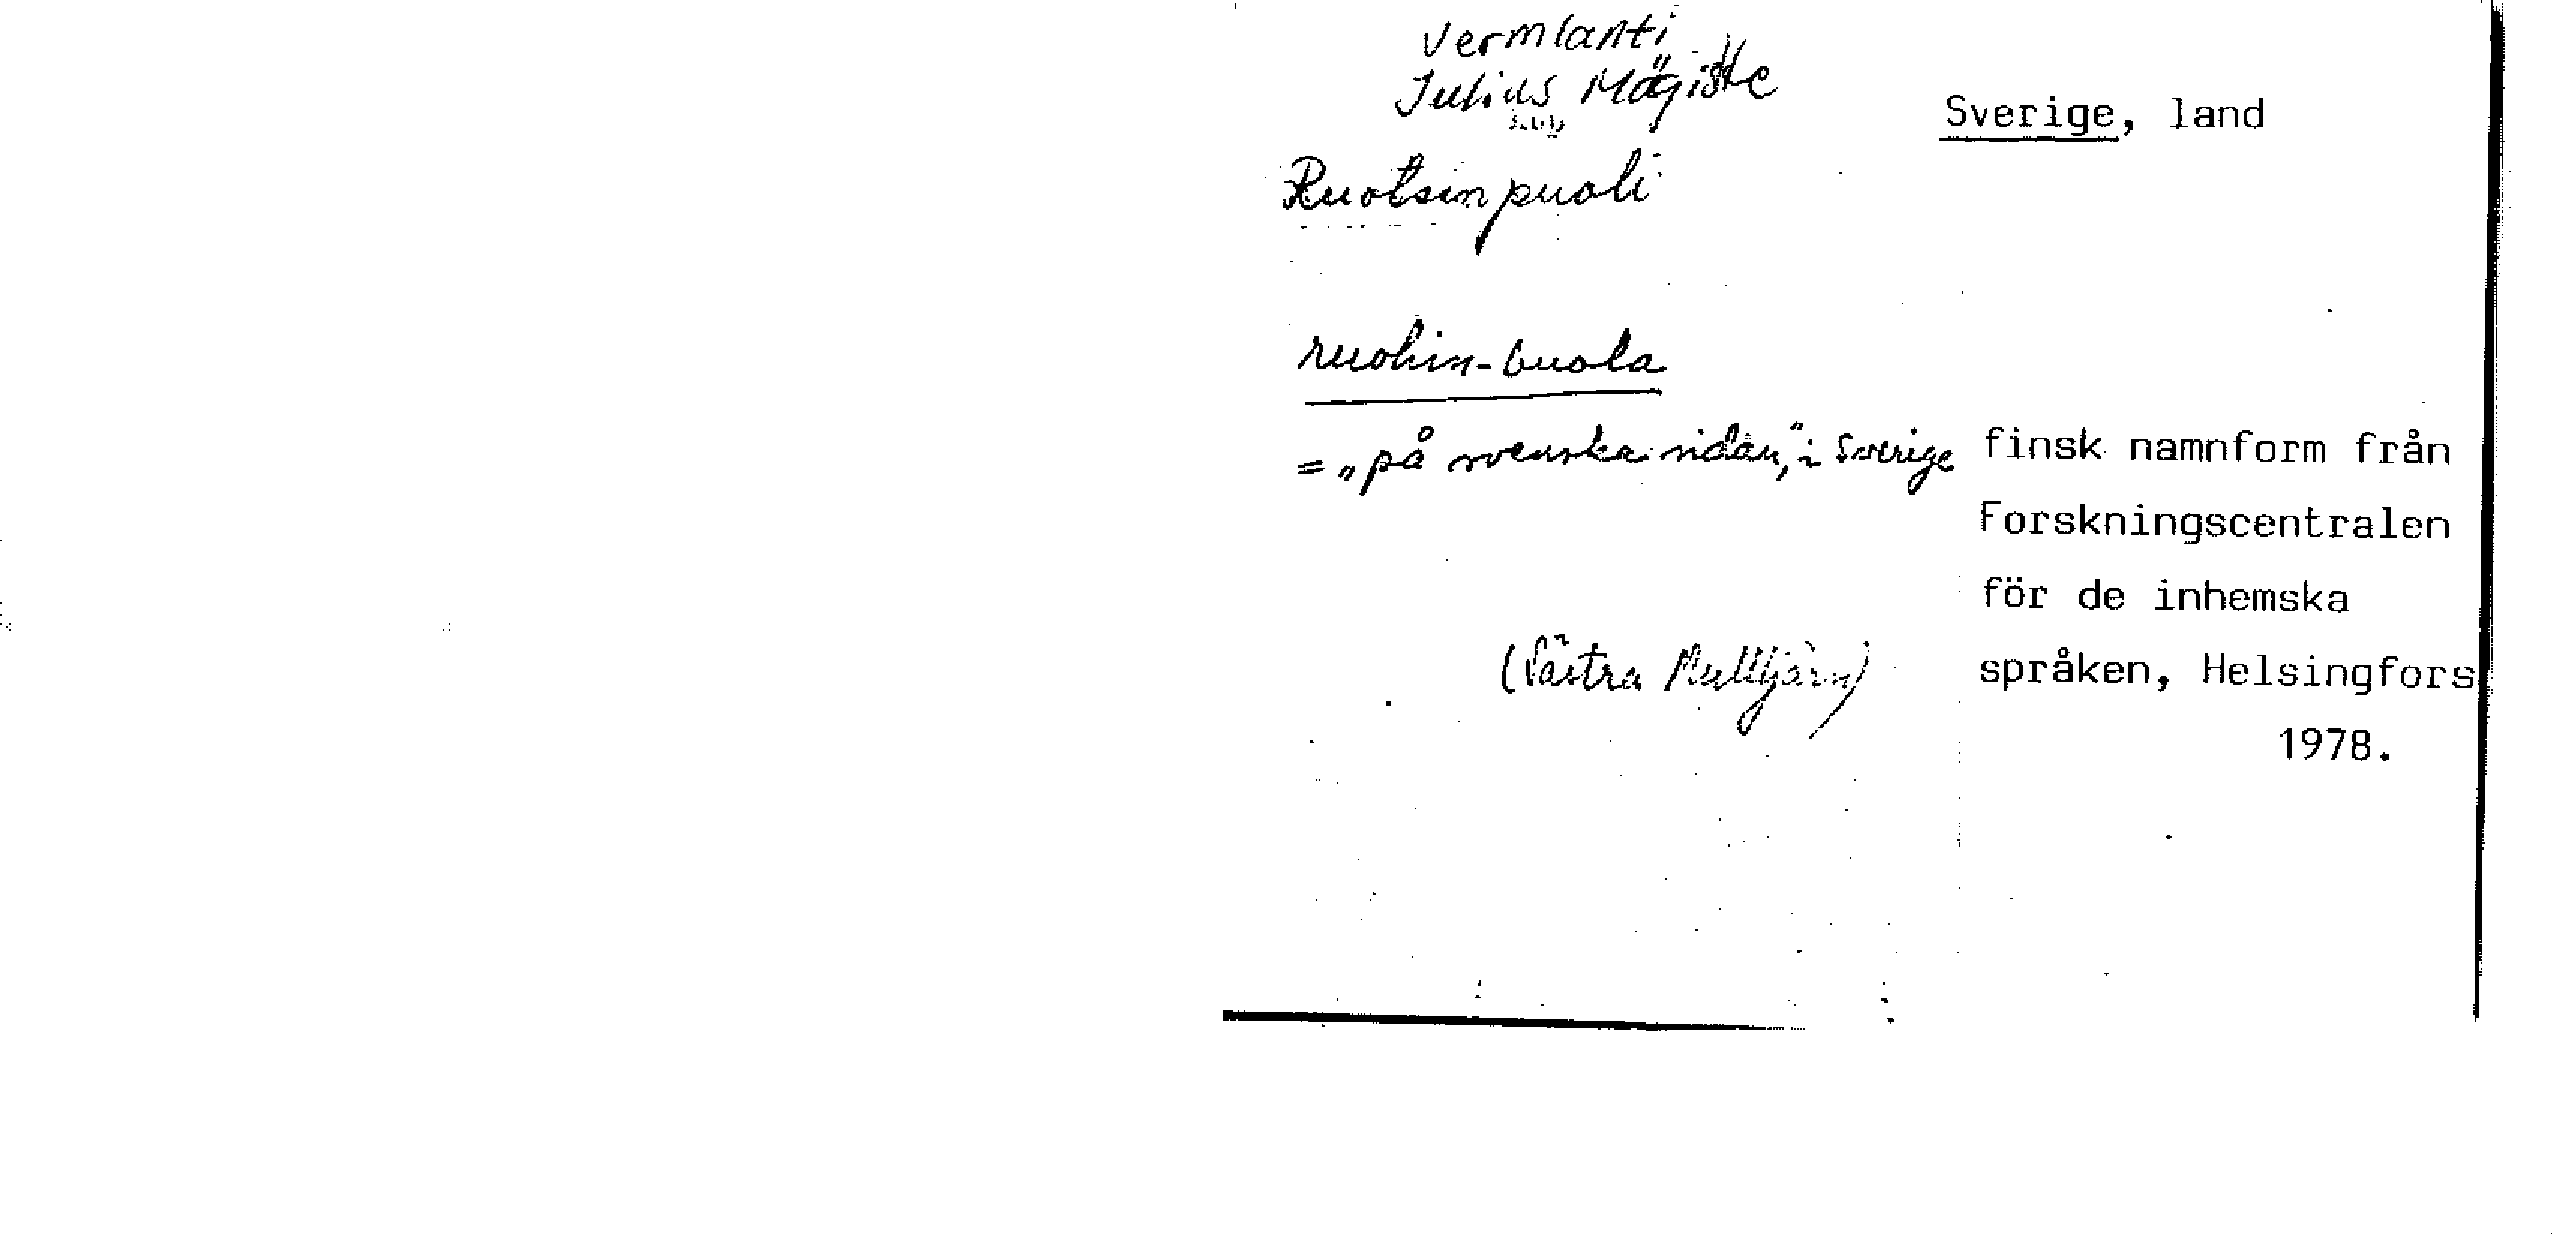 Vermlanti
Julius Mägiste
Sverige, land
Ruotsinpuoli
ruohin-buola
= „på svenska sidan,“ i Sverige
finsk namnform från
Forskningscentralen
för de inhemska
språken, Helsingfors
1978.
(Västra Mulltjärn)